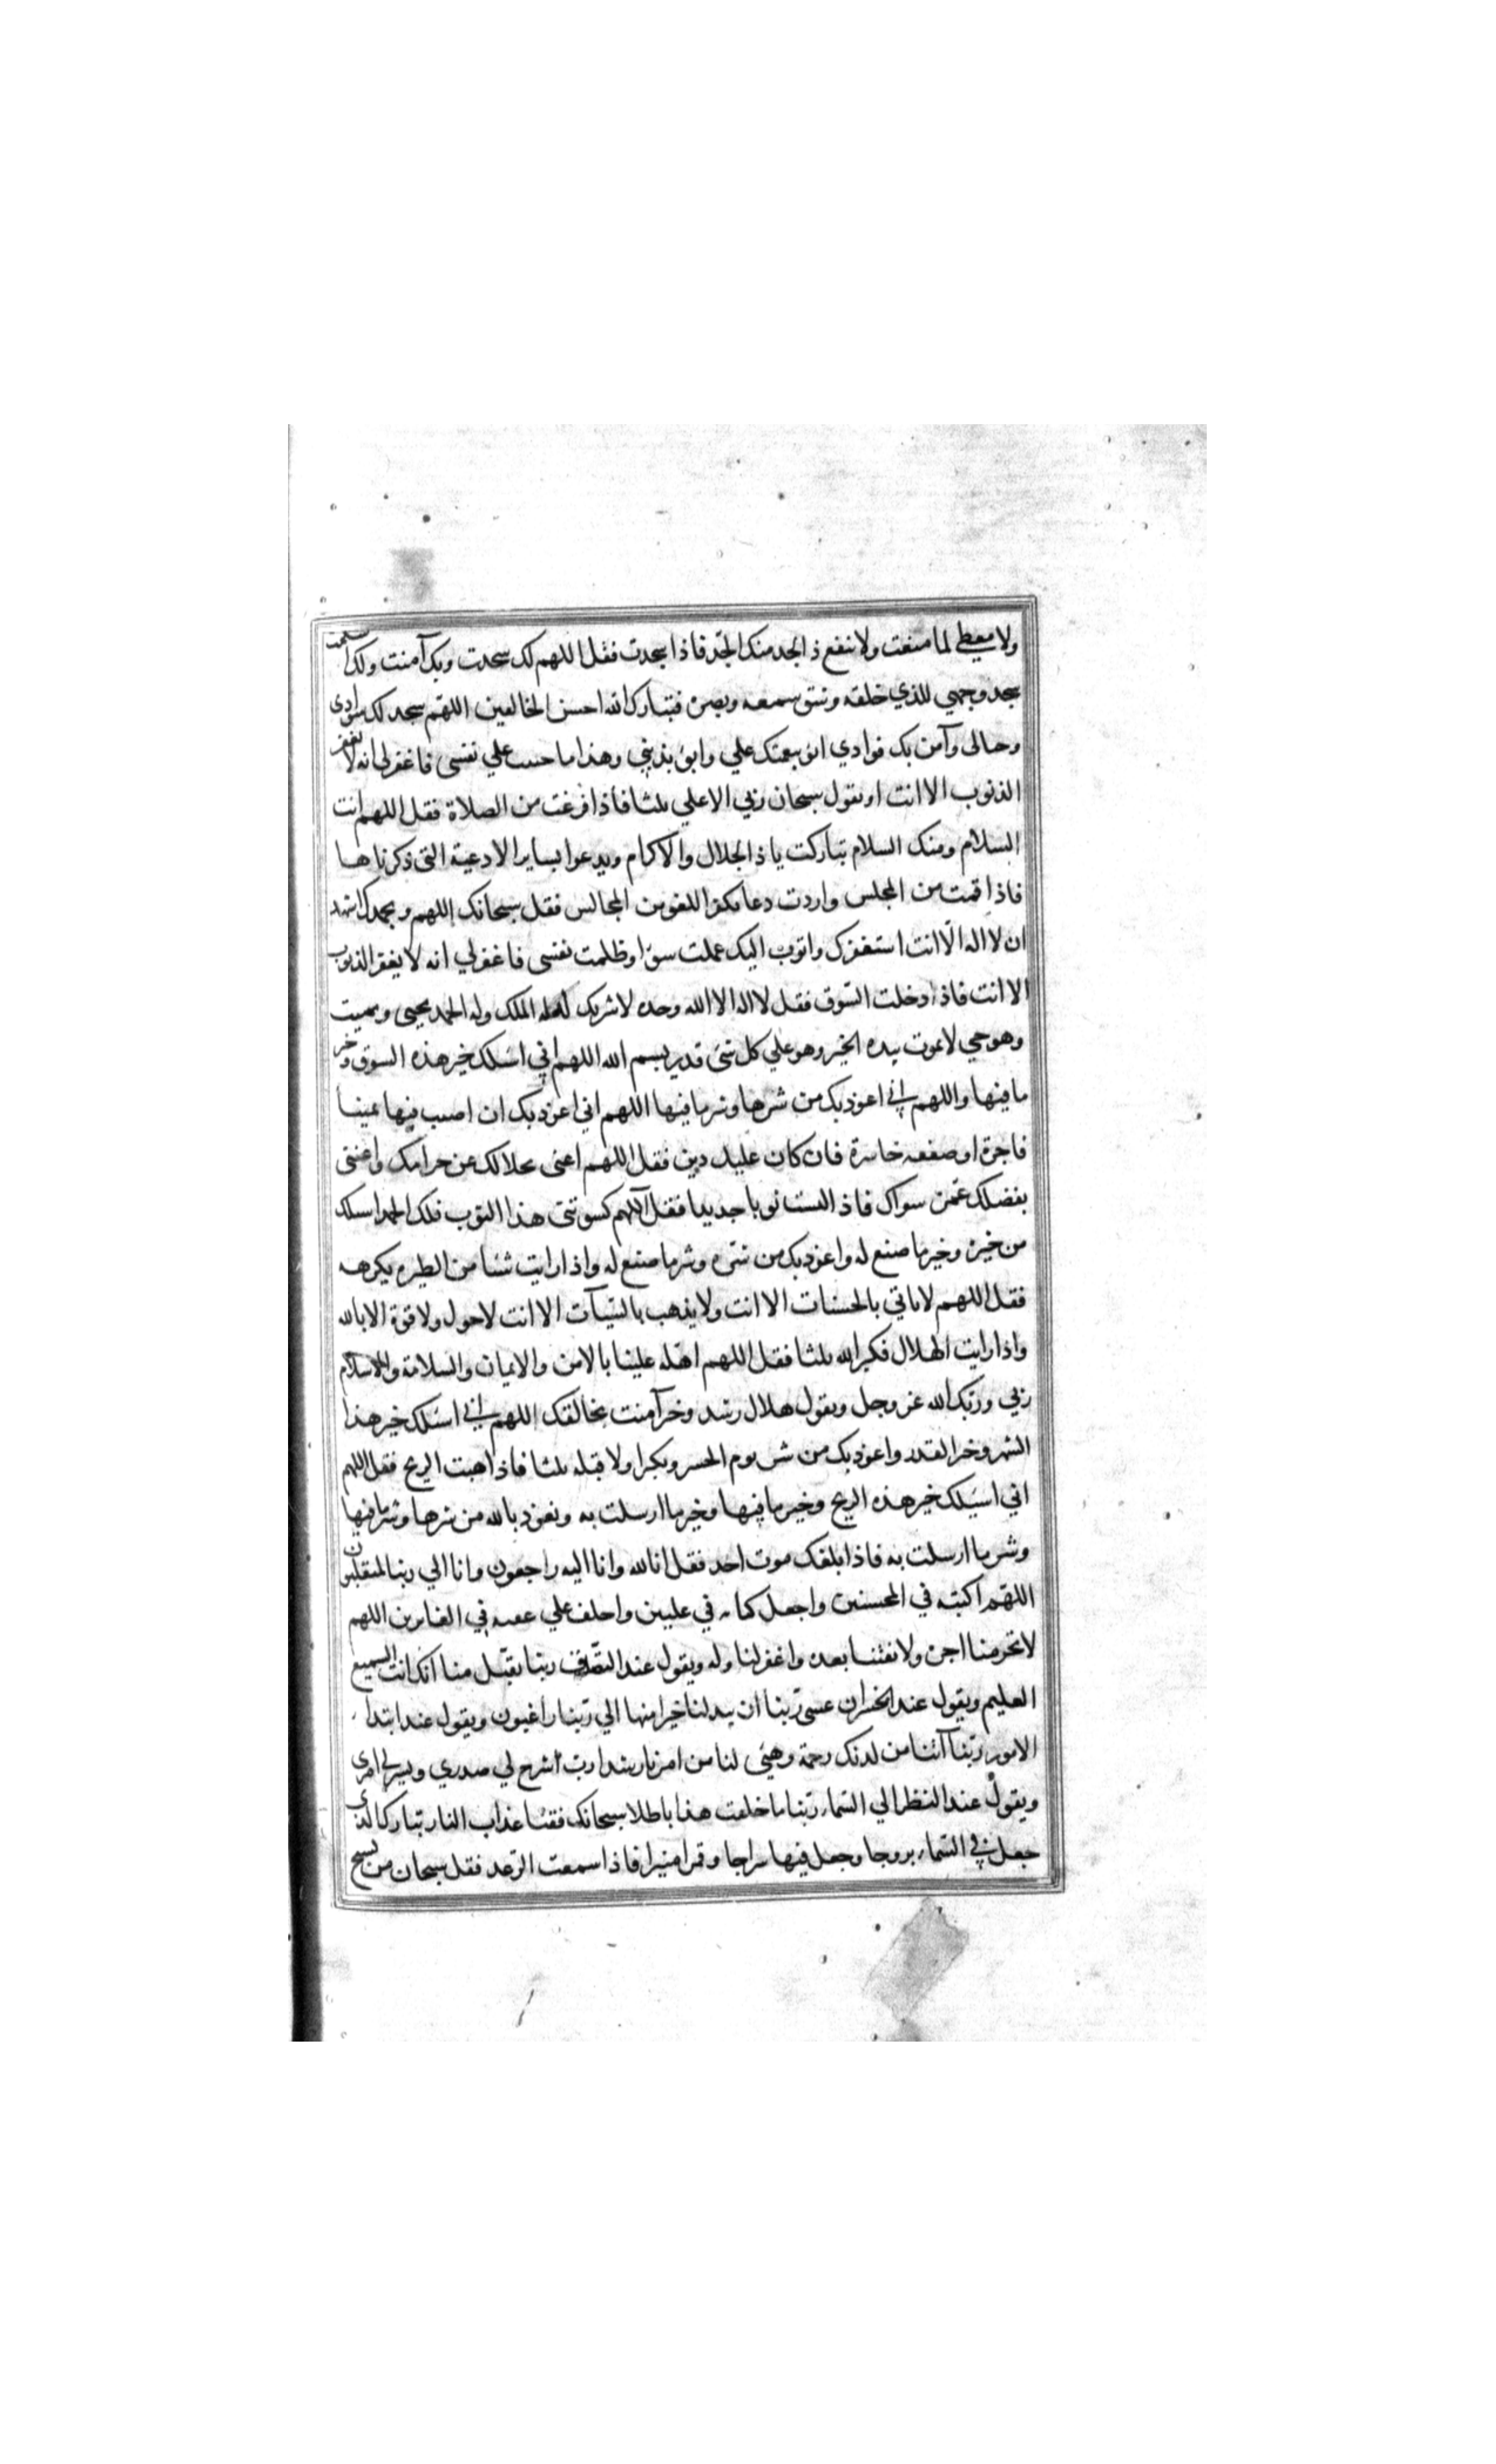 ولا معطي لما منعت ولا ينفع ذ الجد منك الجد فاذا سجدت فقل اللهم لك سجدت وبك آمنت ولك اسلمت
سجد وجهي للذي خلقه وشق سمعه وبصره فتبارك الله احسن الخالقين اللهم سجد لك سوادي
وخيالي وآمن بك فوادي ابؤ بنعمتك علي وابؤ بذنبي وهذا ما جنيت علي نفسي فاغفر لي انه لا يغفر
الذنوب الا انت او يقول سبحان ربي الاعلي ثلثا فاذا فرغت من الصلاة فقل اللهم انت
السلام ومنك السلام تباركت ياذ الجلال والاكرام ويدعوا بساير الادعية التي ذكرناها
فاذا قمت من المجلس واردت دعا يكفر اللغو من المجالس فقل سبحانك اللهم وبحمدك اشهد
ان لا اله الا انت استغفرك واتوب اليك عملت سوا وظلمت نفسي فاغفر لي انه لا يغفر الذنوب
الا انت فاذا دخلت السوق فقل لا اله الا الله وحده لا شريك له له الملك وله الحمد يحيى ويميت
وهو حي لا يموت بيده الخير وهو علي كل شئ قدير بسم الله اللهم اني اسئلك خير هذه السوق وخير
ما فيها واللهم اني اعوذ بك من شرها وشر ما فيها اللهم اني اعوذ بك ان اصيب فيها يمينا
فاجرة او صفقه خاسرة فان كان عليك دين فقل اللهم اغنى بحلالك عن حرامك واغننى
بفضلك عمن سواك فاذ البست ثوبا جديدا فقل اللهم كسوتنى هذا الثوب فلك الحمد اسئلك
من خيره وخير ما صنع له واعوذ بك من شره وشر ما صنع له واذا رايت شئا من الطيره يكرهه
فقل اللهم لا ياتي بالحسنات الا انت ولا يذهب بالسيآت الا انت لا حول ولا قوة الا بالله
واذا رايت الهلال فكبر الله ثلثا فقل اللهم اهله علينا بالامن والايمان والسلامة والاسلام
ربي وربك الله عز وجل ويقول هلال رشد وخير آمنت بخالقك اللهم اني اسئلك خير هذا
الشهر وخير القدر واعوذ بك من شر يوم الحشر ويكبر اولا قبله ثلثا فاذا هبت الريح فقل اللهم
اني اسئلك خير هذه الريح وخير ما فيها وخير ما ارسلت به ونعوذ بالله من شرها وشر ما فيها
وشر ما ارسلت به فاذا بلغك موت احد فقل انا لله وانا اليه راجعون وانا الي ربنا لمنقلبون
اللهم اكتبه في المحسنين واجعل كتابه في عليين واخلف علي عقبه في الغابرين اللهم
لا تحرمنا اجره ولا تفتنا بعده واغفر لنا وله ويقول عند التصدق ربنا تقبل منا انك انت السميع
العليم ويقول عند الخسران عسى ربنا ان يبدلنا خيرا منها الي ربنا راغبون ويقول عند ابتداء
الامور ربنا آتنا من لدنك رحمة وهيئ لنا من امرنا رشدا رب اشرح لي صدري ويسر لي امري
ويقول عند النظر الي السماء ربنا ما خلقت هذا باطلا سبحانك فقنا عذاب النار تبارك الذي
جعل في السماء بروجا وجعل فيها سراجا وقمرا منيرا فاذا سمعت الرعد فقل سبحان من يسبح